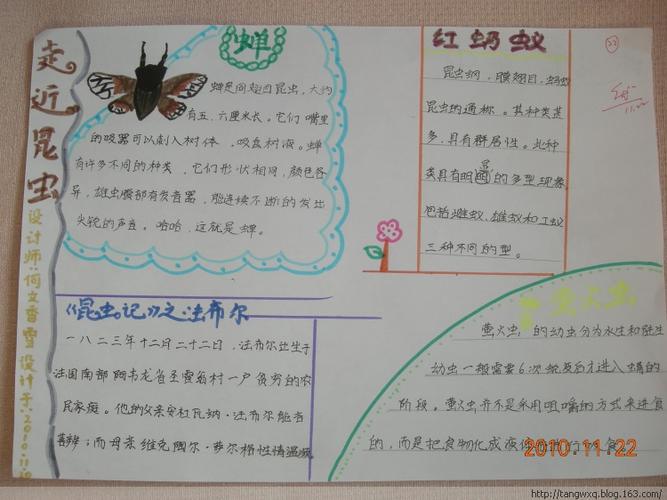 走近昆虫
设计师:何文香雪 设计于:2010.11.20
蝉
蝉是同翅目昆虫,大约
有五、六厘米长。它们嘴里
的吸器可以刺入树体,吸血树液。蝉
有许多不同的种类,它们形状相同,颜色各
异,雄虫腹部有发音器,能连续不断的发出
尖锐的声音。哈哈,这就是蝉。
红蚂蚁
昆虫纲,膜翅目,蚂蚁
昆虫的通称。其种类甚
多,具有群居性。此种
类具有明显的多型现象
包括雌蚁、雄蚁和工蚁
三种不同的型。
22
11.22
《昆虫记》之·法布尔
一八二三年十二月二十二日,法布尔出生于
法国南部阿韦龙省圣雷翁村一户贫穷的农
民家庭。他的父亲安杜瓦纳·法布尔能言
善辩;而母亲维克陶尔·萨尔格性情温顺
萤火虫
萤火虫的幼虫分为水生和陆生
幼虫一般需要6次蜕皮后才进入蛹的
阶段。萤火虫并不是采用咀嚼的方式来进食
的,而是把食物化成液体
2010.11.22
http://tangwxq.blog.163.com/